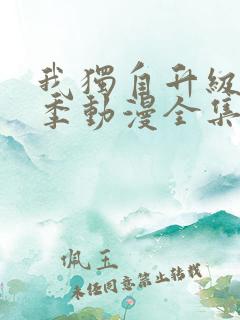 我獨自升級
季動漫全集
佩玉
未经同意禁止转载